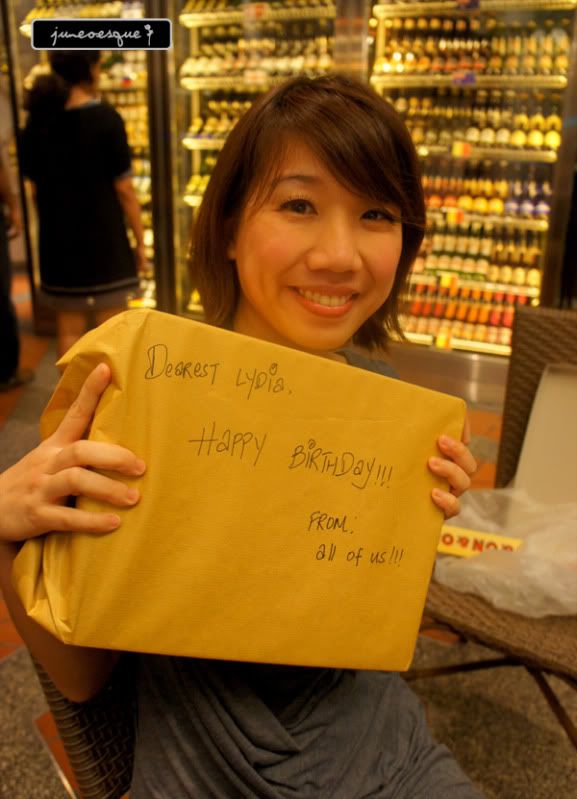 juneoesque
Dearest Lydia,
Happy Birthday!!!
From:
all of us!!!